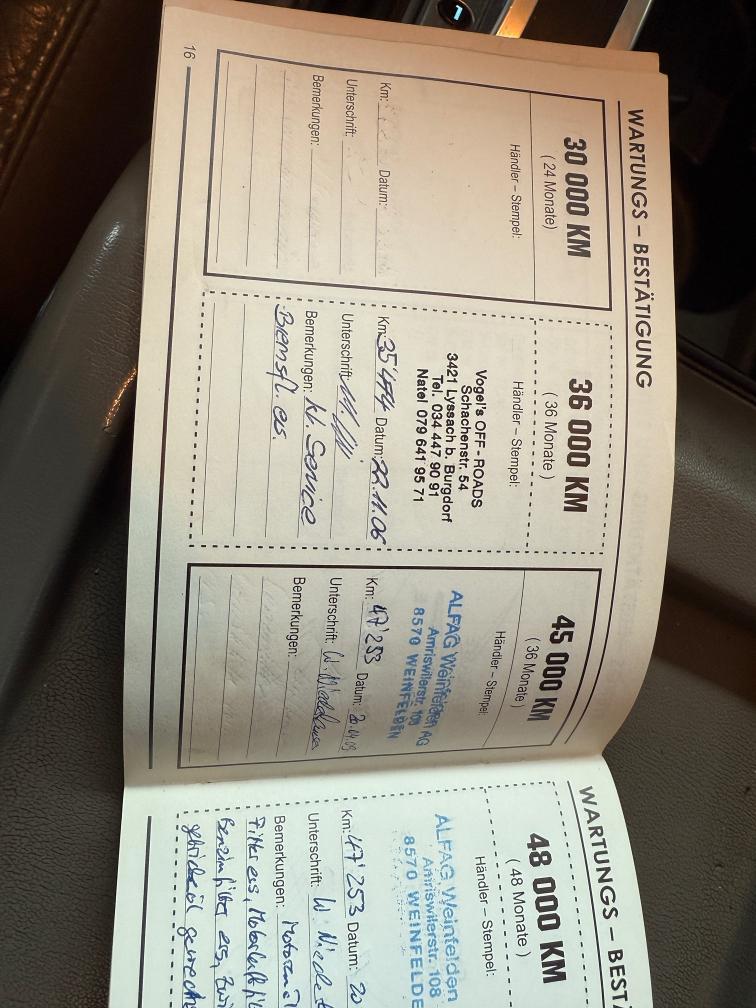 WARTUNGS – BESTÄTIGUNG
30 000 KM
( 24 Monate)
Händler – Stempel:
Km: Datum:
Unterschrift:
Bemerkungen:
36 000 KM
( 36 Monate )
Händler – Stempel:
Vogel's OFF - ROADS
Schachenstr. 54
3421 Lyssach b. Burgdorf
Tel. 034 447 90 91
Natel 079 641 95 71
Km: 35'474 Datum: 22.11.06
Unterschrift:
Bemerkungen: kl. Service
Bremsfl. ers.
45 000 KM
( 36 Monate )
Händler – Stempel:
ALFAG Weinfelden AG
Amriswilerstr. 108
8570 WEINFELDEN
Km: 47'253 Datum: 20.04.09
Unterschrift: W.
Bemerkungen:
16
WARTUNGS – BEST
48 000 KM
( 48 Monate )
Händler – Stempel:
ALFAG Weinfelden
Amriswilerstr. 108
8570 WEINFELDE
Km: 47'253 Datum: 20
Unterschrift: W.
Bemerkungen:
Filter ers,
Benzinfilter ers,
1